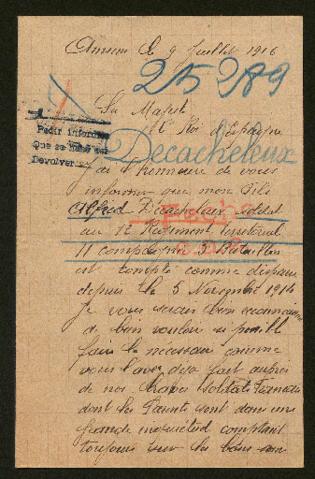 le 9 Juillet 1916
25289
Sa Majesté
le Roi d'Espagne
Pedir informes
Que se
Devolver
Decacheleux
J'ai l'honneur de vous
informer que mon fils
Alfred Decacheleux soldat
au 12 Régiment territorial
11 compagnie 3 Bataillon
est compté comme disparu
depuis le 5 Novembre 1914
Je vous serais bien reconnaissant
de bien vouloir si possible
faire le nécessaire comme
vous l'avez déjà fait auprès
de nos soldats
dont les Parents sont dans une
grande inquiétude comptant
toujours sur